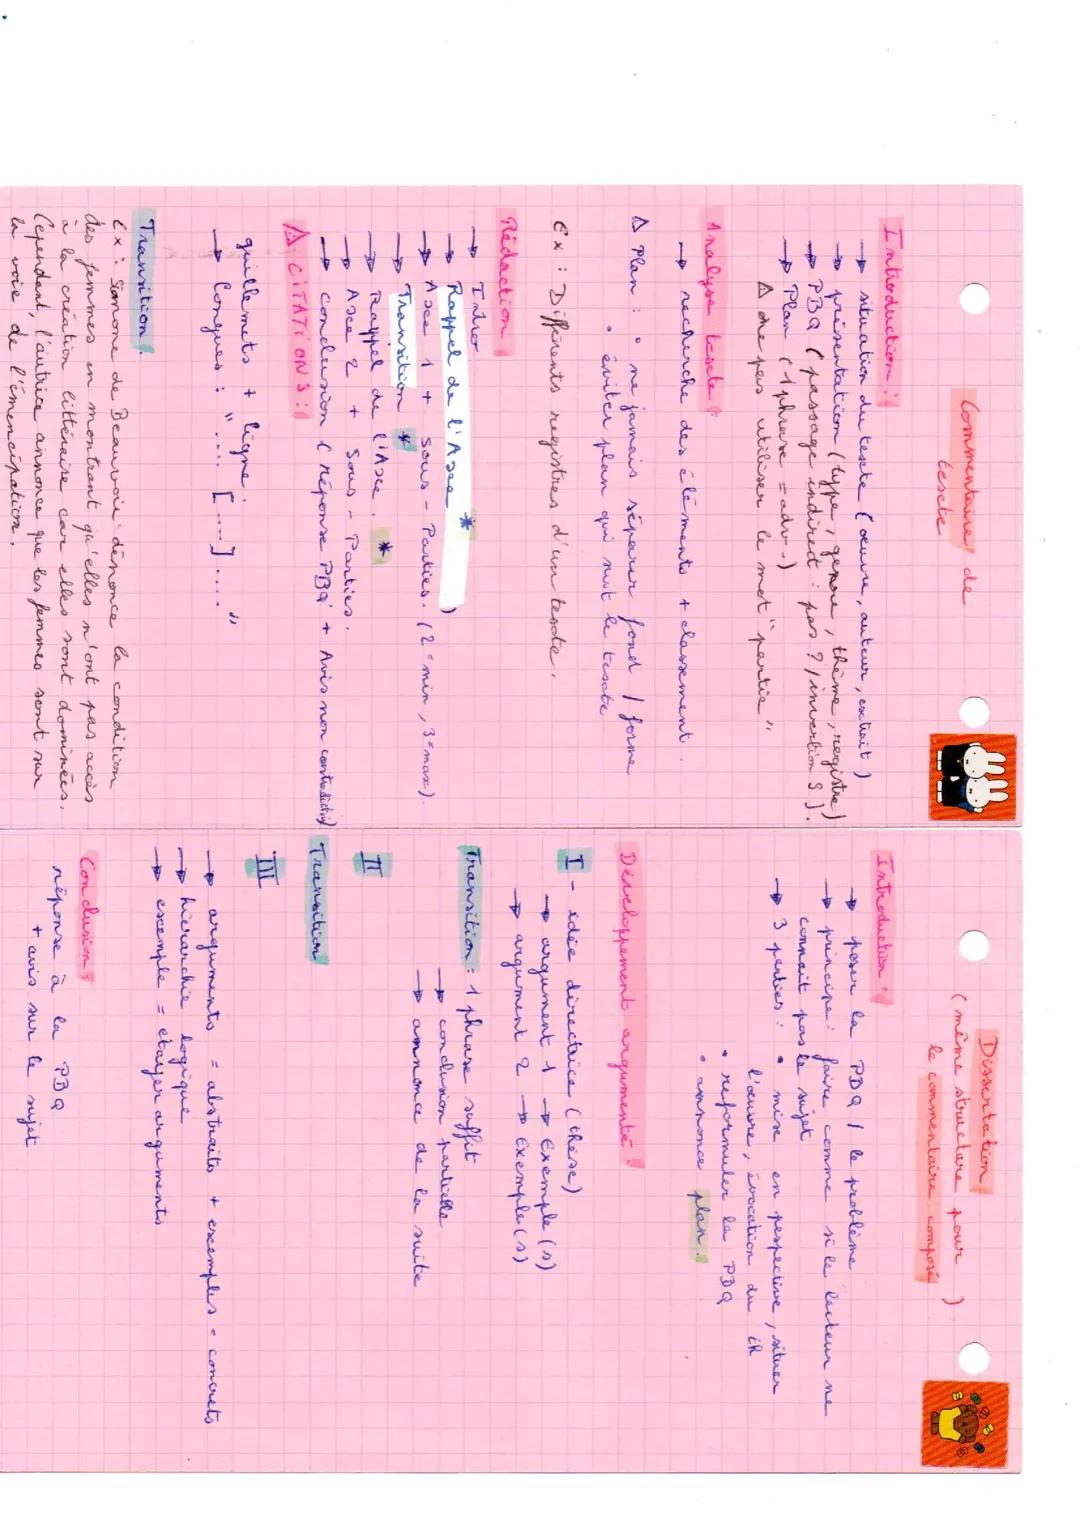 Commentaire de
texte
Introduction :
→ situation du texte (œuvre, auteur, extrait)
→ présentation (type, genre, thème, registre)
→ PBQ (passage indirect : pas ? / inversion S).
→ Plan (1 phrase = adv-)
⚠ ne pas utiliser le mot "partie"
Analyse texte :
→ recherche des éléments + classement.
⚠ Plan : • ne jamais séparer fond / forme
• éviter plan qui suit le texte
Ex : Différents registres d'un texte.
Rédaction :
→ Intro
→ Rappel de l'Axe *
→ Axe 1 + Sous-Parties. (2 = min, 3 = max).
→ Transition *
→ Rappel de l'Axe. *
→ Axe 2 + Sous-Parties.
→ conclusion (réponse PBQ + Avis non contradictoire)
⚠ CITATIONS :
guillemets + ligne.
→ Longues : ".... [....] .... "
Transition :
Ex : Simone de Beauvoir dénonce la condition
des femmes en montrant qu'elles n'ont pas accès
à la création littéraire car elles sont dominées.
Cependant, l'autrice annonce que les femmes sont sur
la voie de l'émancipation.
Dissertation
(même structure pour
le commentaire composé)
Introduction :
→ poser la PBQ / le problème
→ principe : faire comme si le lecteur ne
connait pas le sujet
→ 3 parties : • mise en perspective, situer
l'œuvre, évocation du th
• reformuler la PBQ
• annonce plan.
Développement argumenté :
I - idée directrice (thèse)
→ argument 1 → Exemple(s)
→ argument 2 → Exemple(s)
Transition : 1 phrase suffit
→ conclusion partielle
→ annonce de la suite
II
Transition
III
→ arguments = abstraits + exemples = concrets
→ hiérarchie logique
→ exemple = étayer arguments
Conclusion :
réponse à la PBQ
+ avis sur le sujet